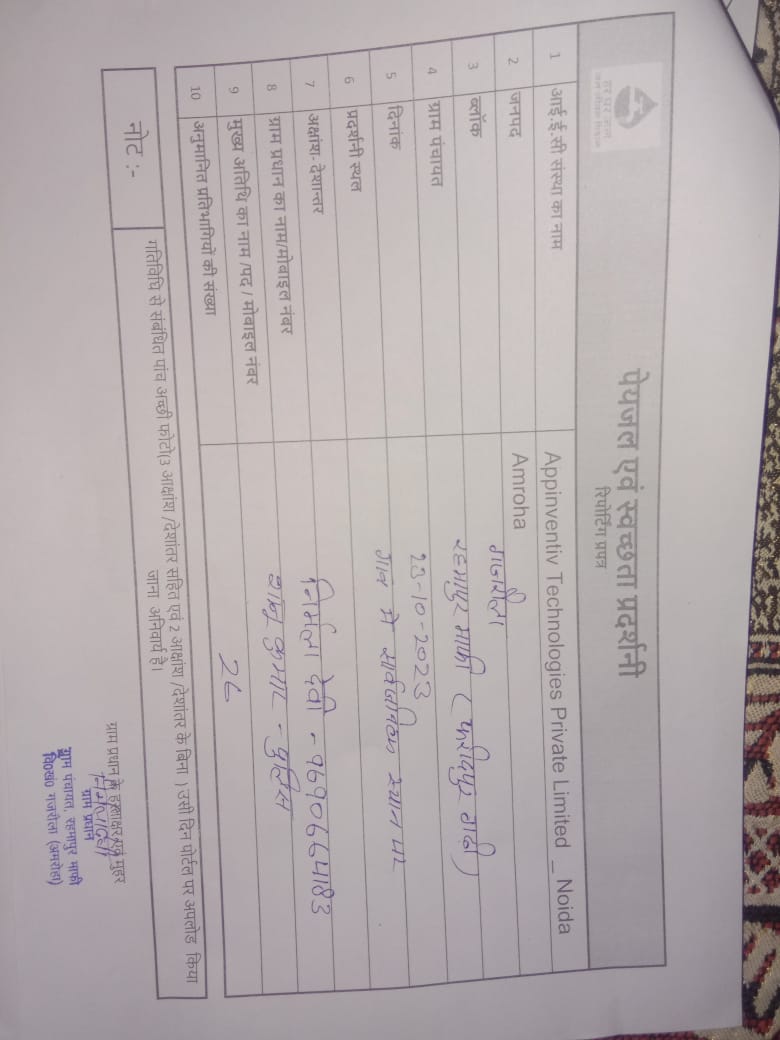 हर घर जल
जल जीवन मिशन
पेयजल एवं स्वच्छता प्रदर्शनी
रिपोर्टिंग प्रपत्र
1 आई.ई.सी संस्था का नाम Appinventiv Technologies Private Limited _ Noida
2 जनपद Amroha
3 ब्लॉक गजरौला
4 ग्राम पंचायत रहमापुर माफी (फरीदपुर माफी)
5 दिनांक 23-10-2023
6 प्रदर्शनी स्थल गांव मे सार्वजनिक स्थान पर
7 अक्षांश- देशान्तर
8 ग्राम प्रधान का नाम/मोबाइल नंबर निर्मला देवी - 9690664183
9 मुख्य अतिथि का नाम /पद / मोबाइल नंबर कुमार -
10 अनुमानित प्रतिभागियों की संख्या 26
नोट :- गतिविधि से संबंधित पांच अच्छी फोटो(3 आक्षांश /देशांतर सहित एवं 2 आक्षांश /देशांतर के बिना ) उसी दिन पोर्टल पर अपलोड किया
जाना अनिवार्य है।
ग्राम प्रधान के हस्ताक्षर एवं मुहर
ग्राम प्रधान
ग्राम पंचायत, रहमापुर माफी
वि0खं0 गजरौला (अमरोहा)